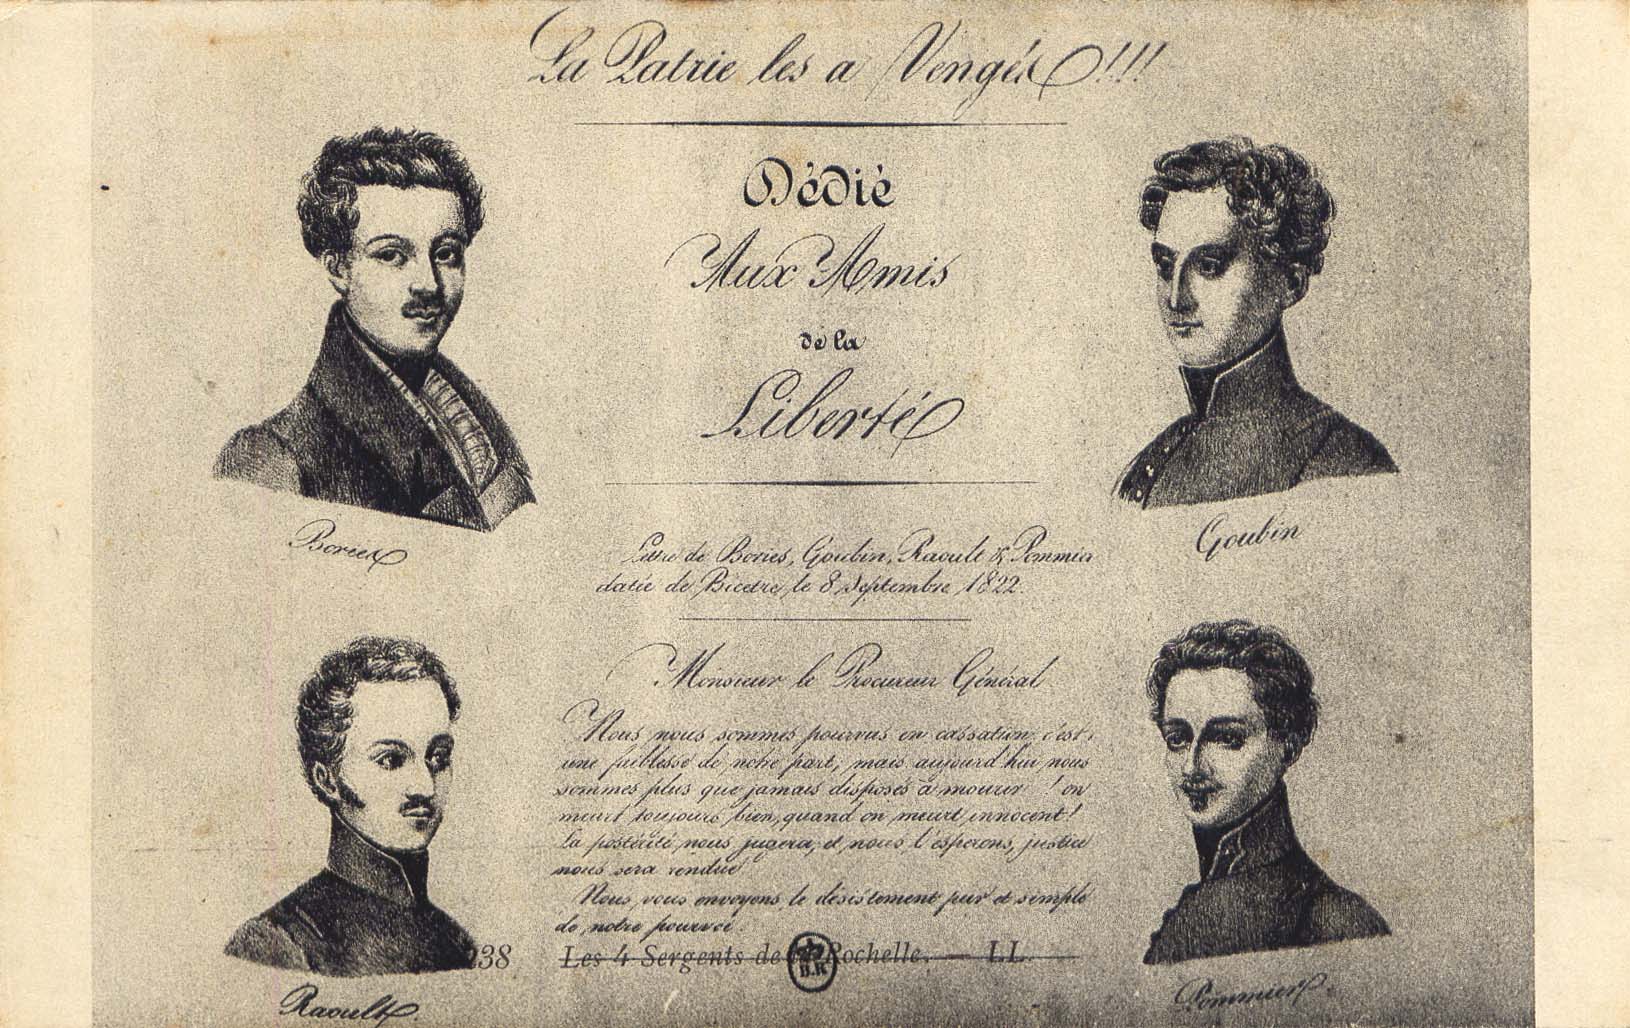 La Patrie les a Vengés!!!
Dédié
Aux Amis
de la
Liberté
Bories
Goubin
Lettre de Bories, Goubin, Raoult & Pommier
datée de Bicetre, le 8 septembre 1822.
Monsieur le Procureur Général
Nous nous sommes pourvus en cassation, c'est
une faiblesse de notre part, mais aujourd'hui nous
sommes plus que jamais disposés à mourir ! on
meurt toujours bien, quand on meurt innocent !
La postérité nous jugera, et nous l'espérons, justice
nous sera rendue
Nous vous envoyons le désistement pur et simple
de notre pourvoi.
Raoult
Pommier
238 Les 4 Sergents de la Rochelle. — LL.
B.R